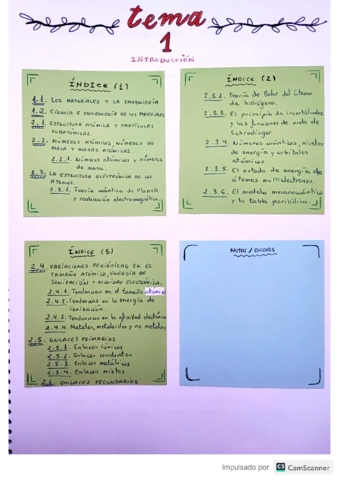 tema
1
INTRODUCCIÓN
ÍNDICE (1)
1.1. LOS MATERIALES Y LA INGENIERÍA
1.2. CIENCIA E INGENIERÍA DE LOS MATERIALES
2.1. ESTRUCTURA ATÓMICA Y PARTÍCULAS
SUBATÓMICAS.
2.2. NÚMEROS ATÓMICOS, NÚMEROS DE
MASA Y MASAS ATÓMICAS.
2.2.1. Números atómicos y números
de masa.
2.3. LA ESTRUCTURA ELECTRÓNICA DE LOS
ÁTOMOS.
2.3.1. Teoría cuántica de Planck
y radiación electromagnética.
ÍNDICE (2)
2.3.2. Teoría de Bohr del átomo
de hidrógeno.
2.3.3. El principio de incertidumbre
y las funciones de onda de
Schrodinger.
2.3.4 Números cuánticos, niveles
de energía y orbitales
atómicos.
2.3.5. El estado de energía de
átomos multielectrones.
2.3.6. El modelo mecanocuántico
y la tabla periódica.
ÍNDICE (3)
2.4. VARIACIONES PERIÓDICAS EN EL
TAMAÑO ATÓMICO, ENERGÍA DE
IONIZACIÓN Y AFINIDAD ELECTRÓNICA.
2.4.1. Tendencias en el tamaño atómico
2.4.2. Tendencias en la energía de
ionización.
2.4.3. Tendencias en la afinidad electrónica
2.4.4. Metales, metaloides y no metales
2.5. ENLACES PRIMARIOS
2.5.1. Enlaces iónicos
2.5.2. Enlaces covalentes
2.5.3. Enlaces metálicos
2.5.4. Enlaces mixtos
2.6. ENLACES SECUNDARIOS
NOTAS / DUDAS
Impulsado por CS CamScanner